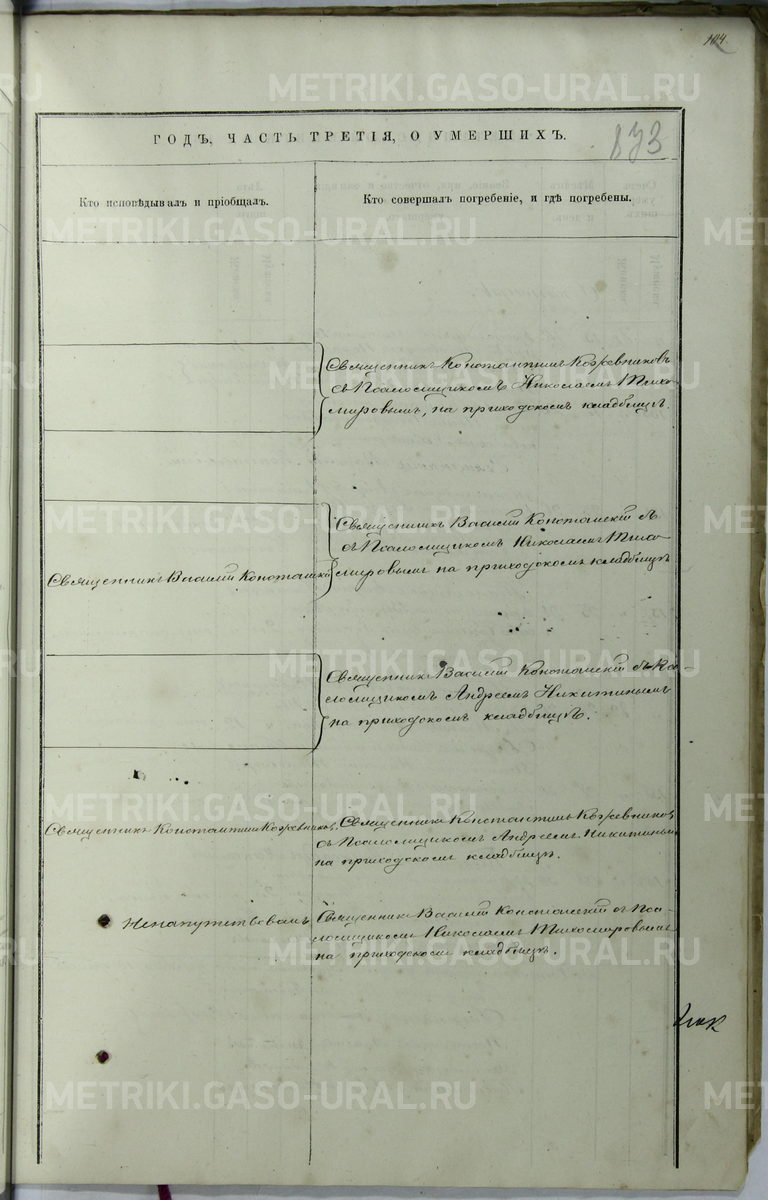 104.
ГОДЪ, ЧАСТЬ ТРЕТІЯ, О УМЕРШИХЪ.
873
Кто исповѣдывалъ и пріобщалъ.
Кто совершалъ погребеніе, и гдѣ погребены.
Священникъ Константинъ Кожевниковъ
съ Псаломщикомъ Николаемъ Тихо-
мировымъ, на приходскомъ кладбищѣ.
Священникъ Василій Конотами
Священникъ Василій съ
съ Псаломщикомъ Николаемъ Тихо-
мировымъ на приходскомъ кладбищѣ
Священникъ Василій съ Пса-
ломщикомъ Андреемъ Никитинымъ
на приходскомъ кладбищѣ.
Священникъ Константинъ Кожевниковъ.
Священникъ Константинъ Кожевниковъ
съ Псаломщикомъ Андреемъ Никитинымъ
на приходскомъ кладбищѣ.
Ненапутствованъ
Священникъ Василій съ Пса-
ломщикомъ Николаемъ Тихомировымъ
на приходскомъ кладбищѣ.
METRIKI.GASO-URAL.RU